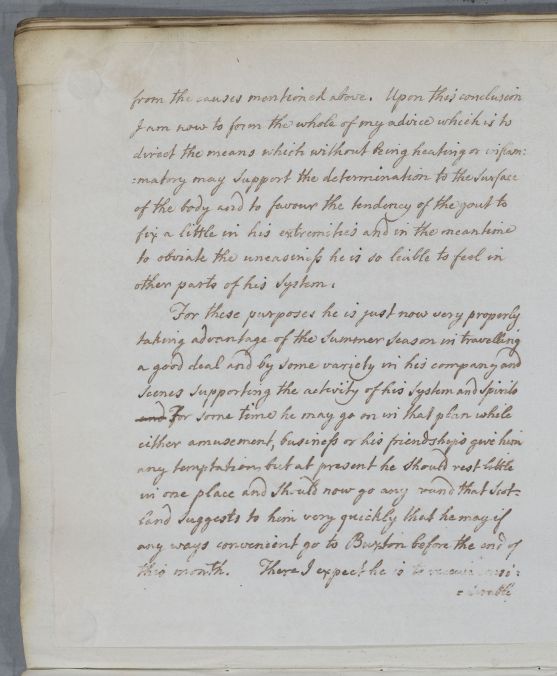 from the causes mentioned above. Upon this conclusion
I am now to form the whole of my advice which is to
direct the means which without being heating or inflam:
:matory may support the determination to the surface
of the body and to favour the tendency of the gout to
fix a little in his extremities and in the meantime
to obviate the uneasiness he is so liable to feel in
other parts of his System.
For these purposes he is just now very properly
taking advantage of the Summer Season in travelling
a good deal and by some variety in his company and
Scenes supporting the activity of his System and Spirits
and For some time he may go on in that plan while
either amusement, business or his friendships give him
any temptation, but at present he should rest little
in one place and should now go any round that Scot=
land suggests to him very quickly that he may if
any ways convenient go to Buxton before the end of
this month. There I expect he is to receive consi:
:derable